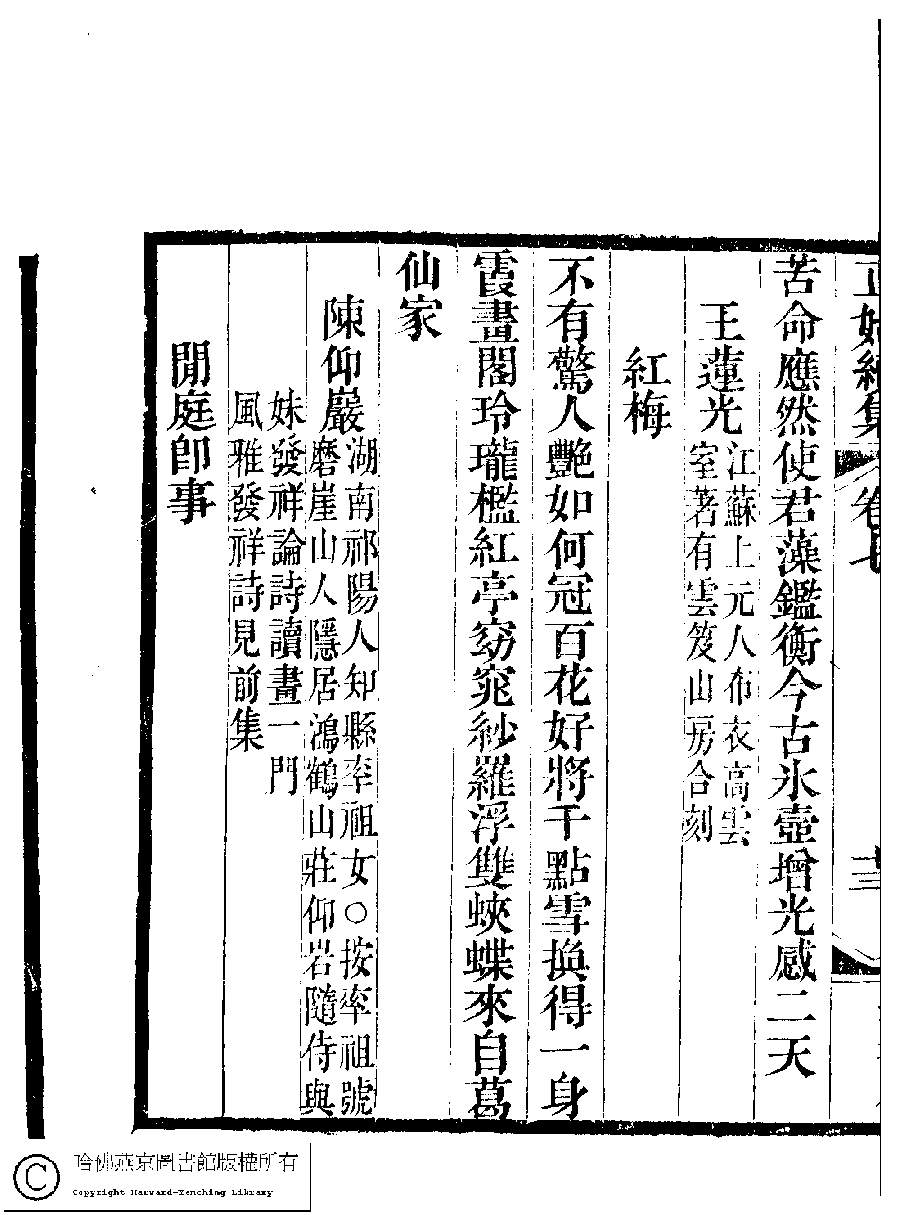 正始續集 卷七
苦命應然使君藻鑑衡今古氷壺增光感二天
王蓮光 江蘇上元人布衣高雲
室著有雲笈山房合刻
紅梅
不有驚人艷如何冠百花好將千點雪換得一身
霞畫閣玲瓏檻紅亭窈窕紗羅浮雙蛺蝶來自葛
仙家
陳仰巖 湖南祁陽人知縣率祖女○按率祖號
磨崖山人隱居鴻鶴山莊仰岩隨侍與
妹發祥論詩讀畫一門
風雅發祥詩見前集
閒庭卽事
哈佛燕京圖書館版權所有
Copyright Harvard-Yenching Library